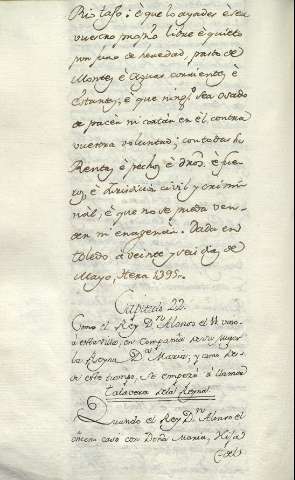 Pio taso: è que lo ayades è sea
vuestro propio libre è quieto
por juro de heredad, pasto de
Montes, è Aguas corrientes, è
estantes, è que ning.º sea osado
de pacer, ni cortar en el, contra
vuestra voluntad; con todas las
Rentas, è pechos, è dros. è fue-
ros, è Jurisdicion civil y crimi-
nal, è que no se pueda ven-
der ni enagenar. Dada en
toledo, a veinte y seis dias de
Mayo, Hera 1395.
Capitulo 22.
Como el Rey D.n Alonso el 11 vino
a esta villa, en Compañia de su muger
la Reyna D.a Maria; y como des-
de este tiempo, se empezó à llamar
Talavera de la Reyna.
Quando el Rey D.n Alonso el
onceno caso con Doña Maria, Hija